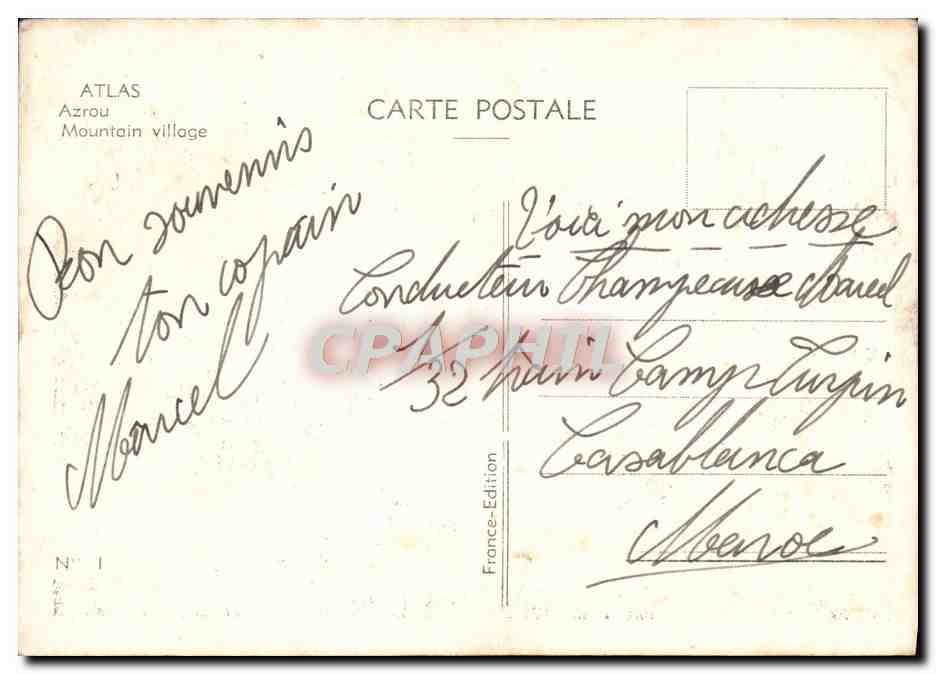 ATLAS
Azrou
Mountain village
CARTE POSTALE
Bon souvenirs
ton copain
Marcel
Voici mon adresse
Conducteur Champeaux Marcel
32 train Camp Turpin
Casablanca
Maroc
France-Edition
N° 1
CPAPHIL